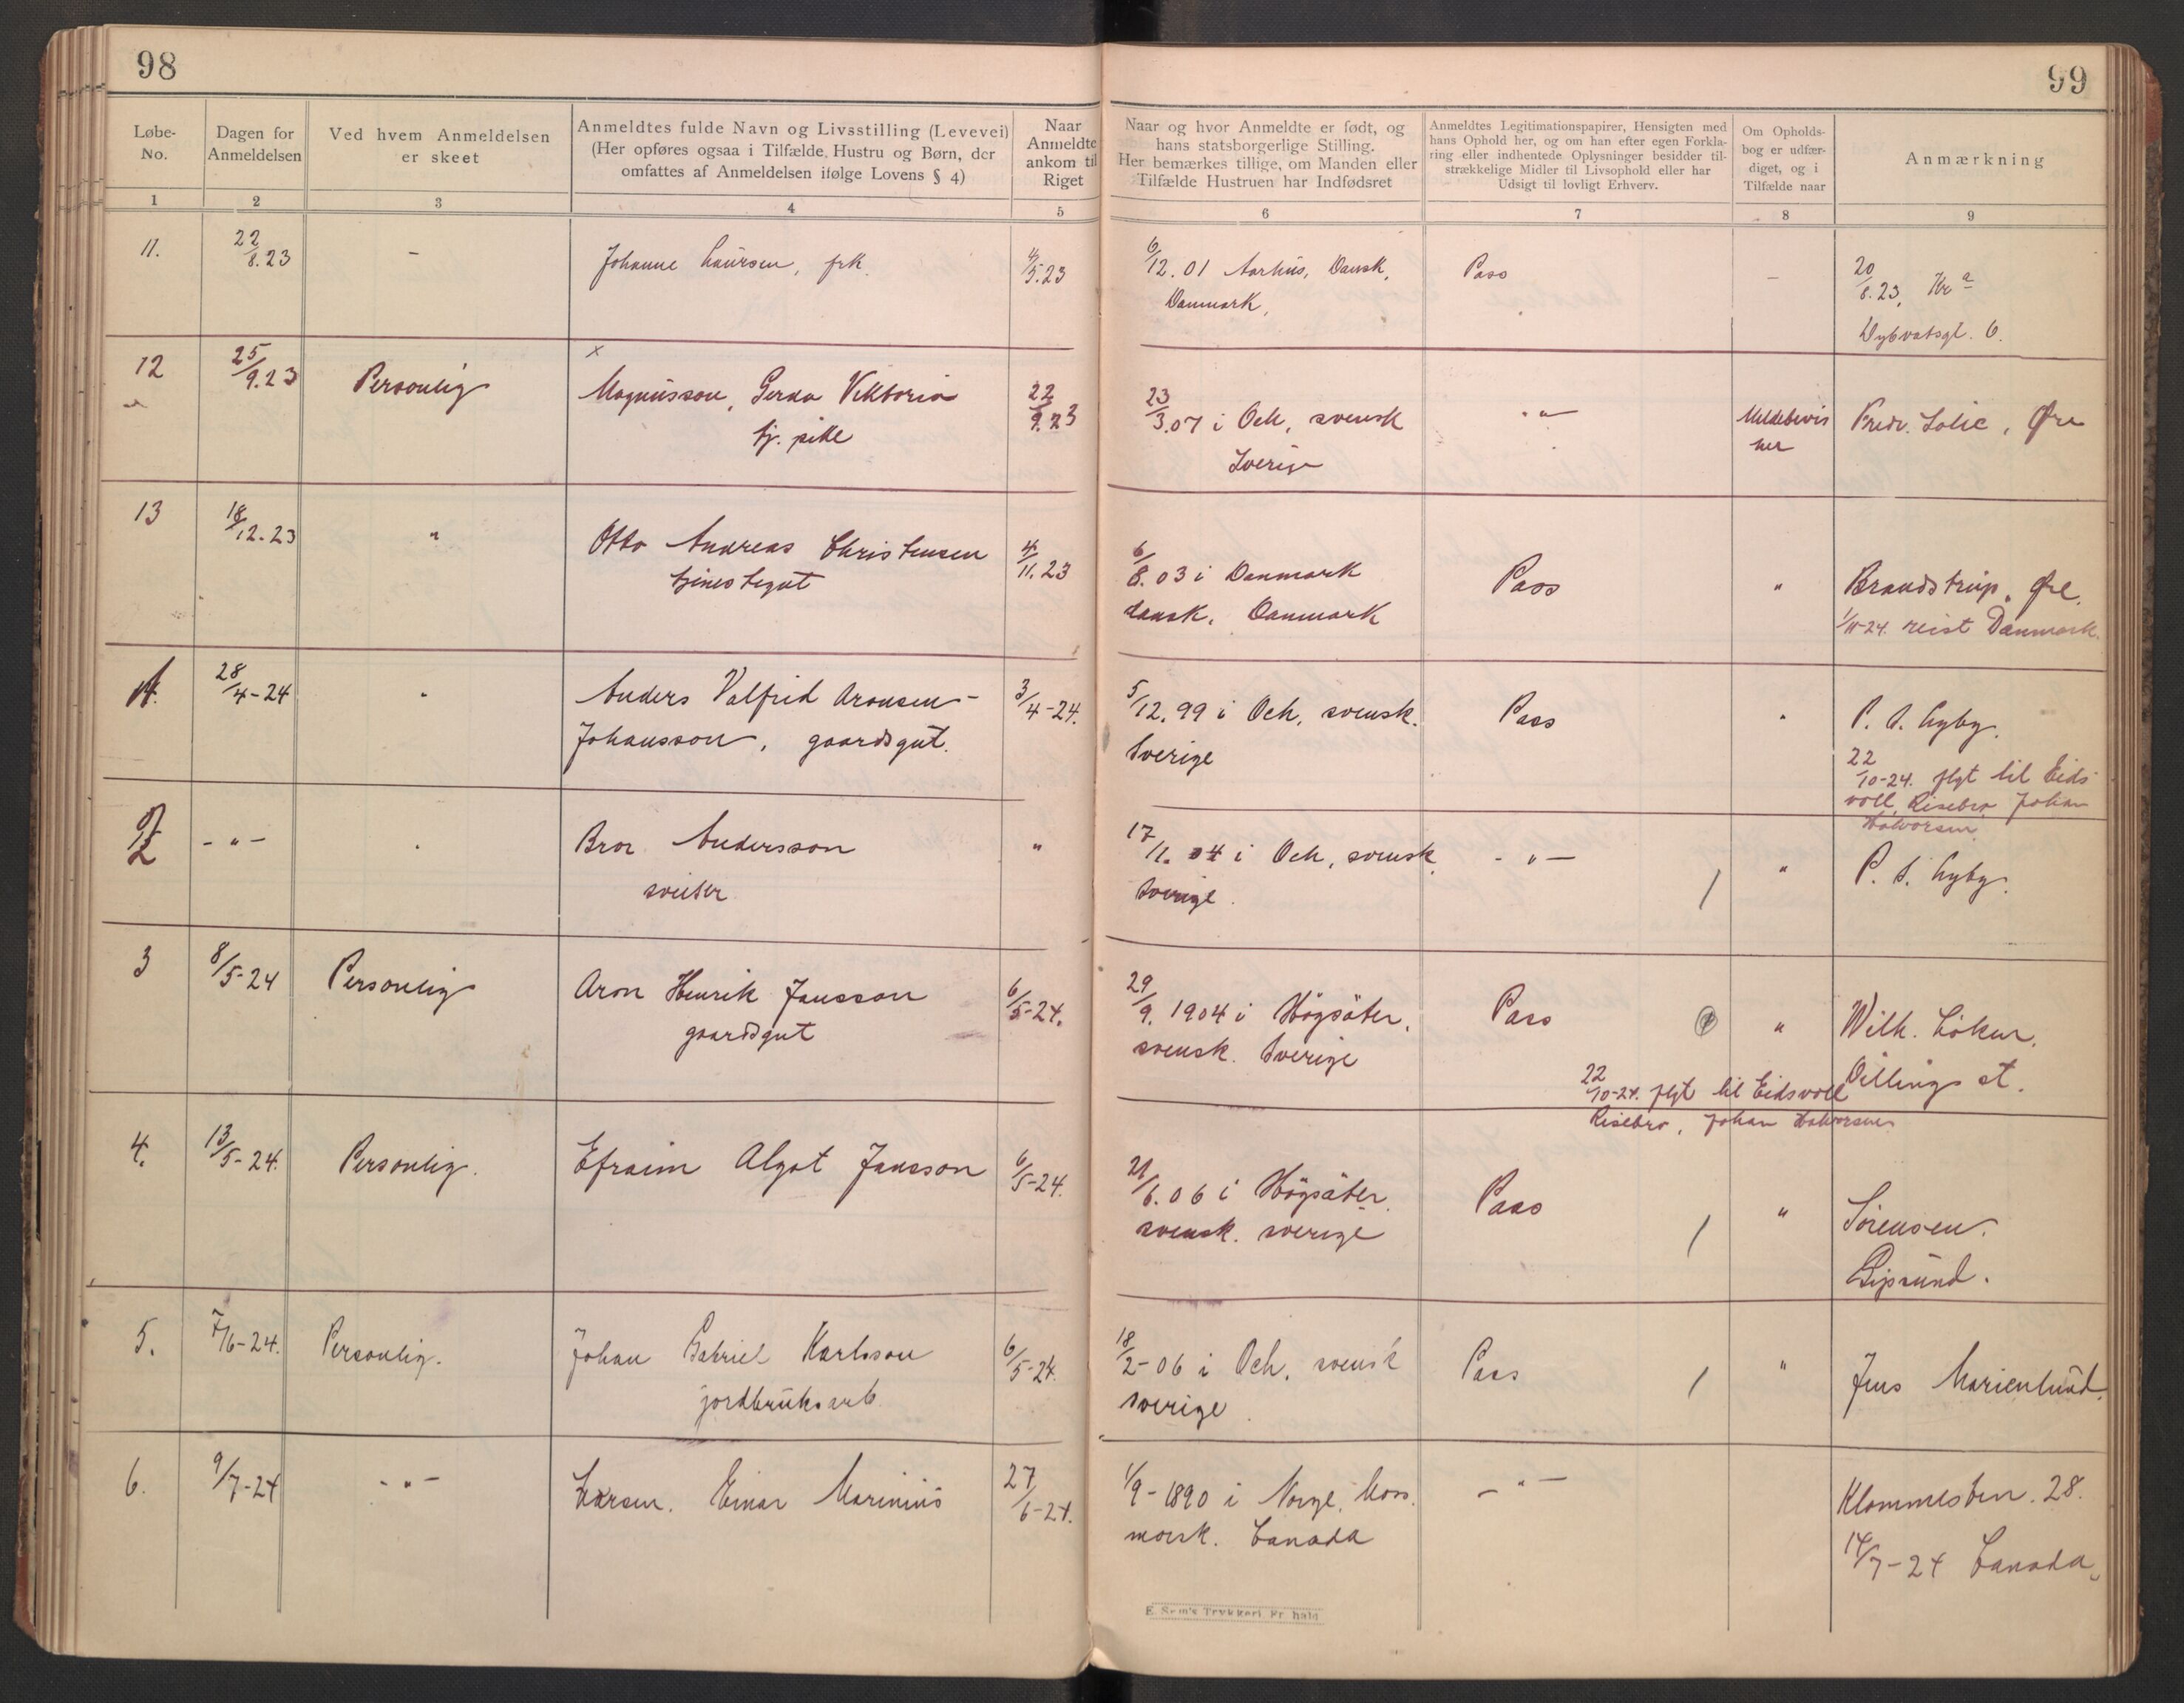 98
99
Løbe-No.
Dagen for Anmeldelsen
Ved hvem Anmeldelsen er skeet
Anmeldtes fulde Navn og Livsstilling (Levevei)
(Her opføres ogsaa i Tilfælde Hustru og Børn, der
omfattes af Anmeldelsen ifølge Lovens § 4)
Naar Anmeldte ankom til Riget
Naar og hvor Anmeldte er født, og
hans statsborgerlige Stilling.
Her bemærkes tillige, om Manden eller
Tilfælde Hustruen har Indfødsret
Anmeldtes Legitimationspapirer, Hensigten med
hans Ophold her, og om han efter egen Forkla-
ring eller indhentede Oplysninger besidder til-
strækkelige Midler til Livsophold eller har
Udsigt til lovligt Erhverv.
Om Opholds-
bog er udfær-
diget, og i
Tilfælde naar
Anmærkning
1 2 3 4 5 6 7 8 9
11. 22/8.23 - Johanne Laursen, frk. 4/5.23 6/12.01 Aarhus, Dansk, Pass - 20/8.23, Kr a
Danmark,
Dybvatsgt. 6.
12 25/9.23 Personlig Magnusson, Gerda Viktoria 22/9.23 23/3.07 i Och, svensk -"- Meldebevis Fredr. Solie, Øre
tj. pike Sverige her
13 18/12.23 " Otto Andreas Christensen 4/11.23 6/8.03 i Danmark Pass " Brandstrup, Øre.
tjenestegut dansk. Danmark 1/11-24. reist Danmark.
1. 28/4-24 " Anders Valfrid Aronsen- 3/4-24. 5/12.99 i Och, svensk. Pass " P. A. Lyby.
Johansson, gaardsgut. Sverige
22/10-24. flyt til Eids-
voll, Risebro, Johan
Halvorsen
2 -"- " Bror Andersson " 17/11.04 i Och, svensk. -"- / " P. A. Lyby.
sveiser Sverige.
3 8/5-24 Personlig Aron Henrik Jansson 6/5-24. 29/9.1904 i Högsäter, Pass " Wilh. Löken,
gaardsgut svensk. Sverige Dillings st.
22/10-24. flyt til Eidsvoll
Risebro, Johan Halvorsen
4. 13/5-24. Personlig. Efraim Algot Jansson 6/5-24. 21/6.06 i Högsäter. Pass / " Sörensen.
svensk. sverige Pipsund.
5. 7/6-24. Personlig. Johan Gabriel Karlsson 6/5-24. 18/2-06 i Och, svensk Pass / " Jens Marienlund.
jordbruksarb. sverige.
6. 9/7-24 -"- Larsen. Einar Marinius 27/6-24. 1/9-1890 i Norge, Moss. -"- Klommesten. 28.
norsk. Canada 14/7-24 Canada.
E. Sem's Trykkeri, Fr.hald